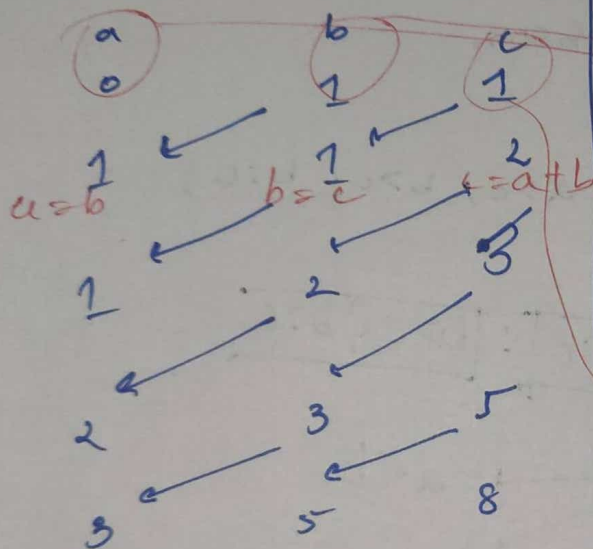 a b c
0 1 1
1 1 2
a = b b = c c = a + b
1 2 3
2 3 5
3 5 8